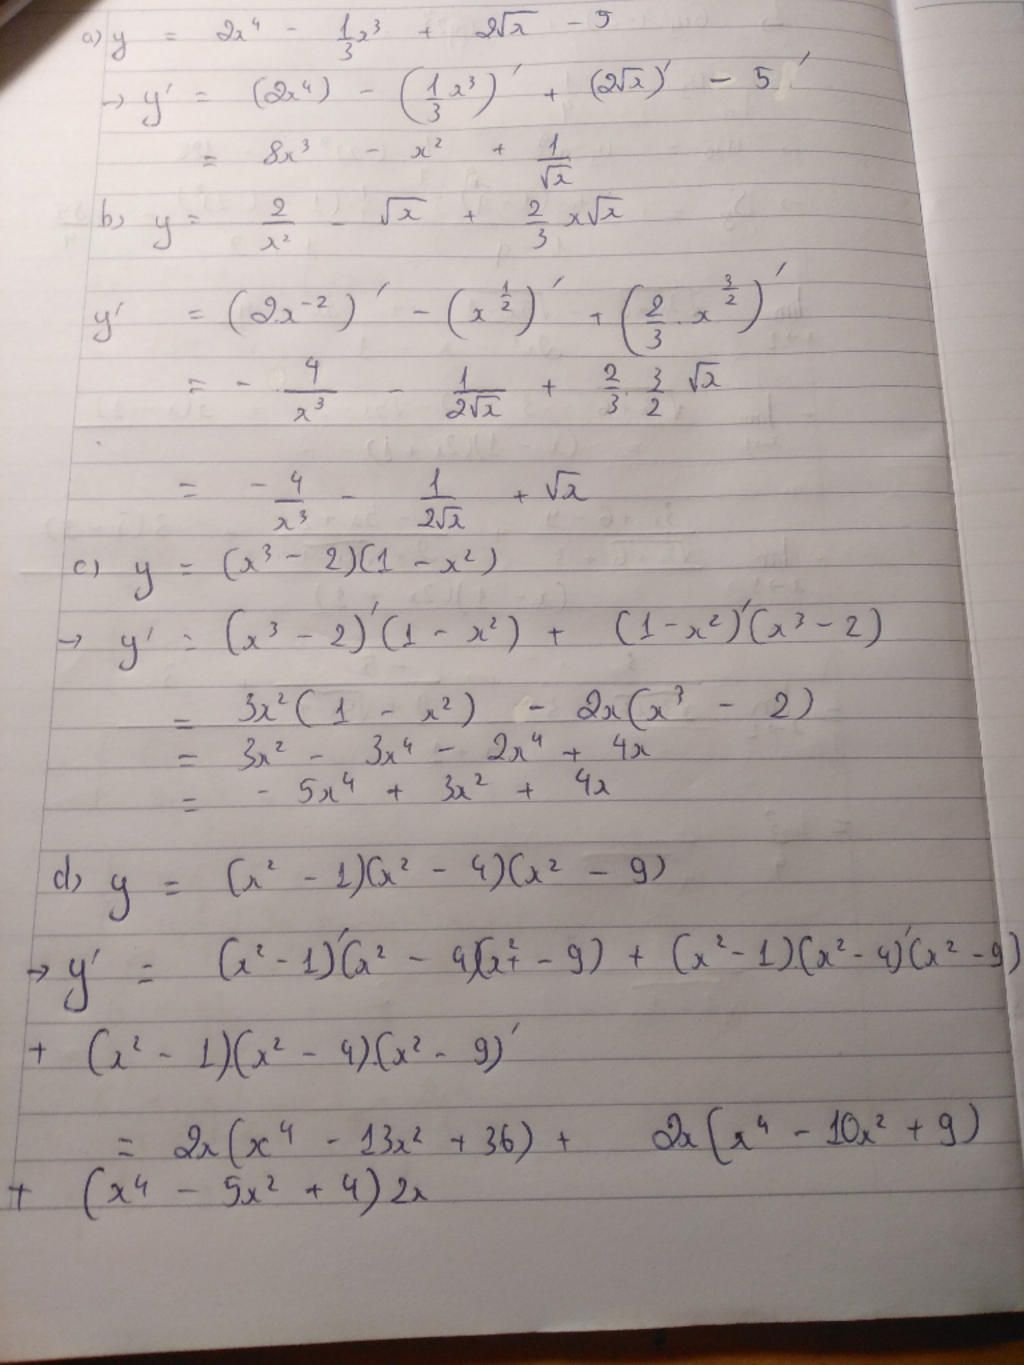 a) y = 2x⁴ - 1/3 x³ + 2√x - 5
→ y' = (2x⁴) - (1/3 x³)' + (2√x)' - 5'
= 8x³ - x² + 1/√x
b) y = 2/x² - √x + 2/3 x√x
y' = (2x⁻²)' - (x^(1/2))' + (2/3 . x^(3/2))'
= - 4/x³ - 1/(2√x) + 2/3 . 3/2 √x
= - 4/x³ - 1/(2√x) + √x
c) y = (x³ - 2)(1 - x²)
→ y' = (x³ - 2)'(1 - x²) + (1 - x²)'(x³ - 2)
= 3x²(1 - x²) - 2x(x³ - 2)
= 3x² - 3x⁴ - 2x⁴ + 4x
= - 5x⁴ + 3x² + 4x
d) y = (x² - 1)(x² - 4)(x² - 9)
→ y' = (x² - 1)'(x² - 4)(x² - 9) + (x² - 1)(x² - 4)'(x² - 9)
+ (x² - 1)(x² - 4)(x² - 9)'
= 2x(x⁴ - 13x² + 36) + 2x(x⁴ - 10x² + 9)
+ (x⁴ - 5x² + 4)2x